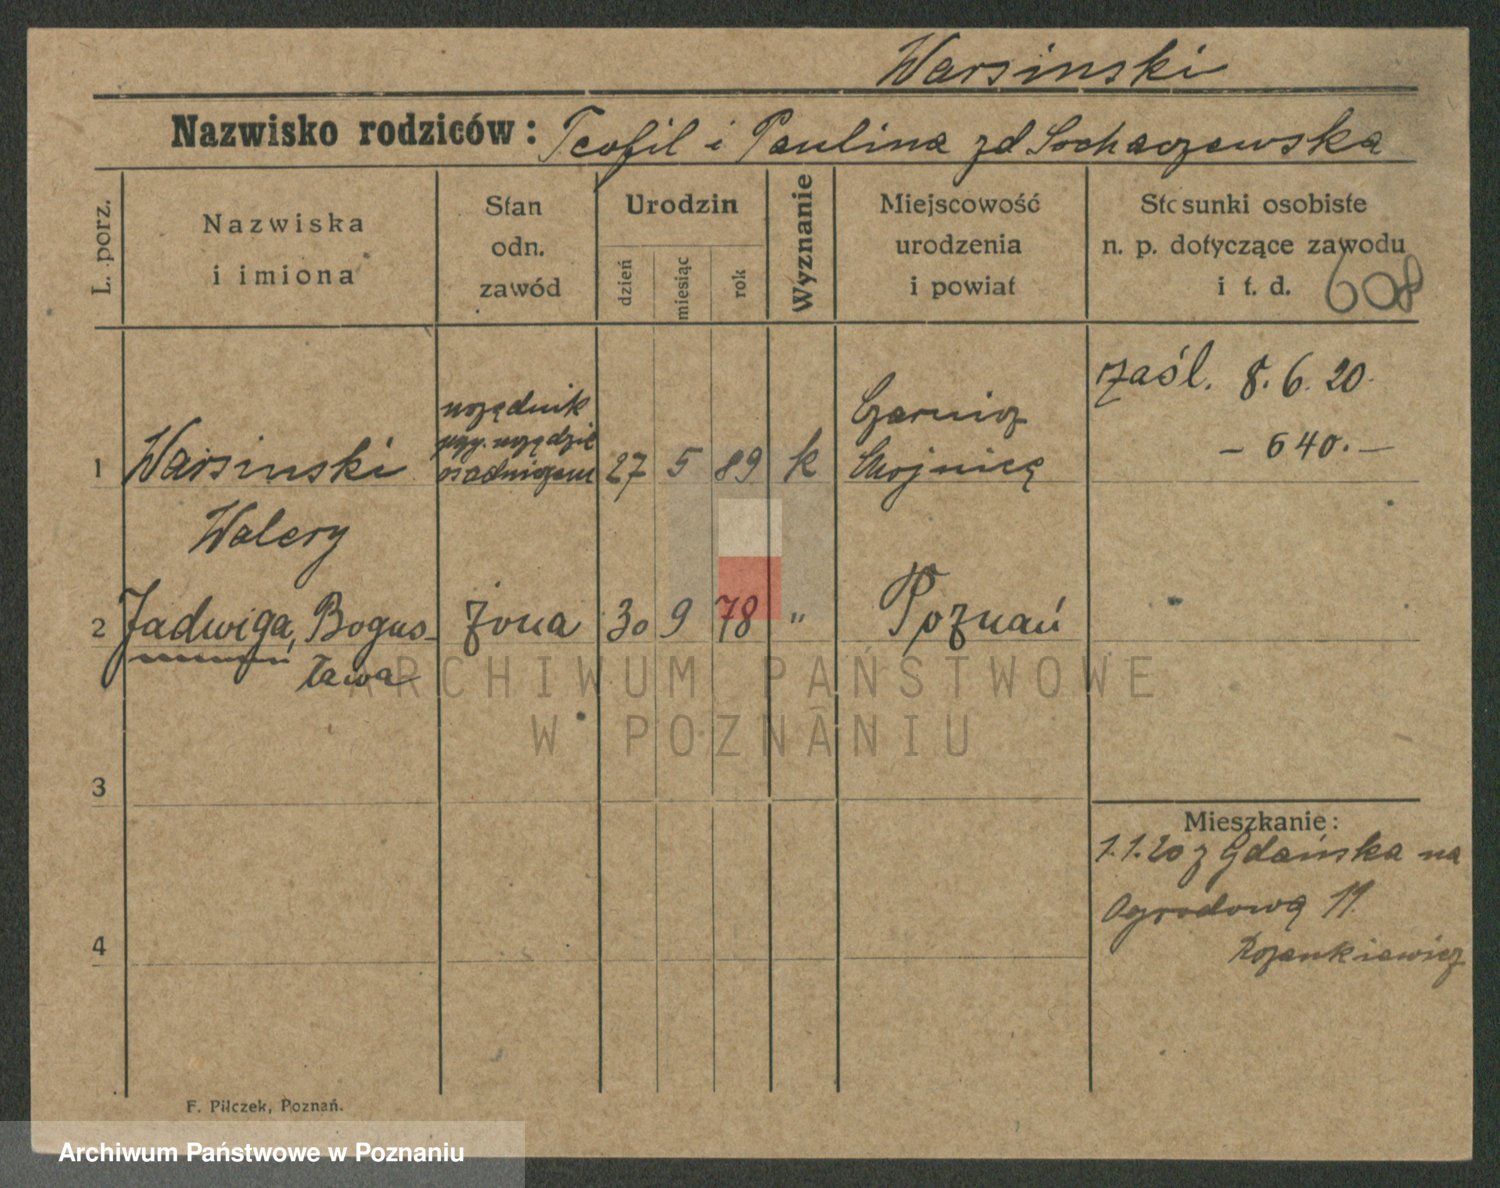 Warsinski
Nazwisko rodziców: Teofil i Paulina zd Sochaczewska
L. porz.
Nazwiska
i imiona
Stan
odn.
zawód
Urodzin
dzień
miesiąc
rok
Wyznanie
Miejscowość
urodzenia
i powiat
Stosunki osobiste
n. p. dotyczące zawodu
i t. d.
608
zaśl. 8. 6. 20.
- 640.-
1
Warsinski
Walery
urzędnik
przy. urzędzie
osadniczem
27 5 89 k
Czarniz
Chojnicę
2 Jadwiga, Bogus-
ława
żona 30 9 78 " Poznań
ARCHIWUM PAŃSTWOWE
W POZNANIU
3
4
Mieszkanie:
1.1.20 z Gdańska na
Ogrodową 11.
F. Pilczek, Poznań.
Archiwum Państwowe w Poznaniu